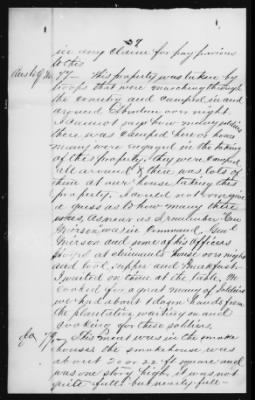 29
in any claim for pay previous
to this
77— This property was taken by
troops that were marching through
the country and camped in and
around Stanton over night
I cannot say how many soldiers
there was camped here or how
many were engaged in the taking
of this property, they were camped
all around & there was lots of
them at our house taking this
property. I could not
a guess as to how many there
was, as near as I remember Gen
Grierson was in command. Genl
Grierson and some of his officers
stayed at house over night
and took supper and Breakfast.
I waited on them at the table. We
cooked for a great many of Soldiers
we had about 1 dozen hands from
the plantation waiting on and
cooking for these soldiers.
This meat was in the smoke
house the smokehouse was
about 20 or 22 ft square and
was one story high it was not
quite full but nearly full—